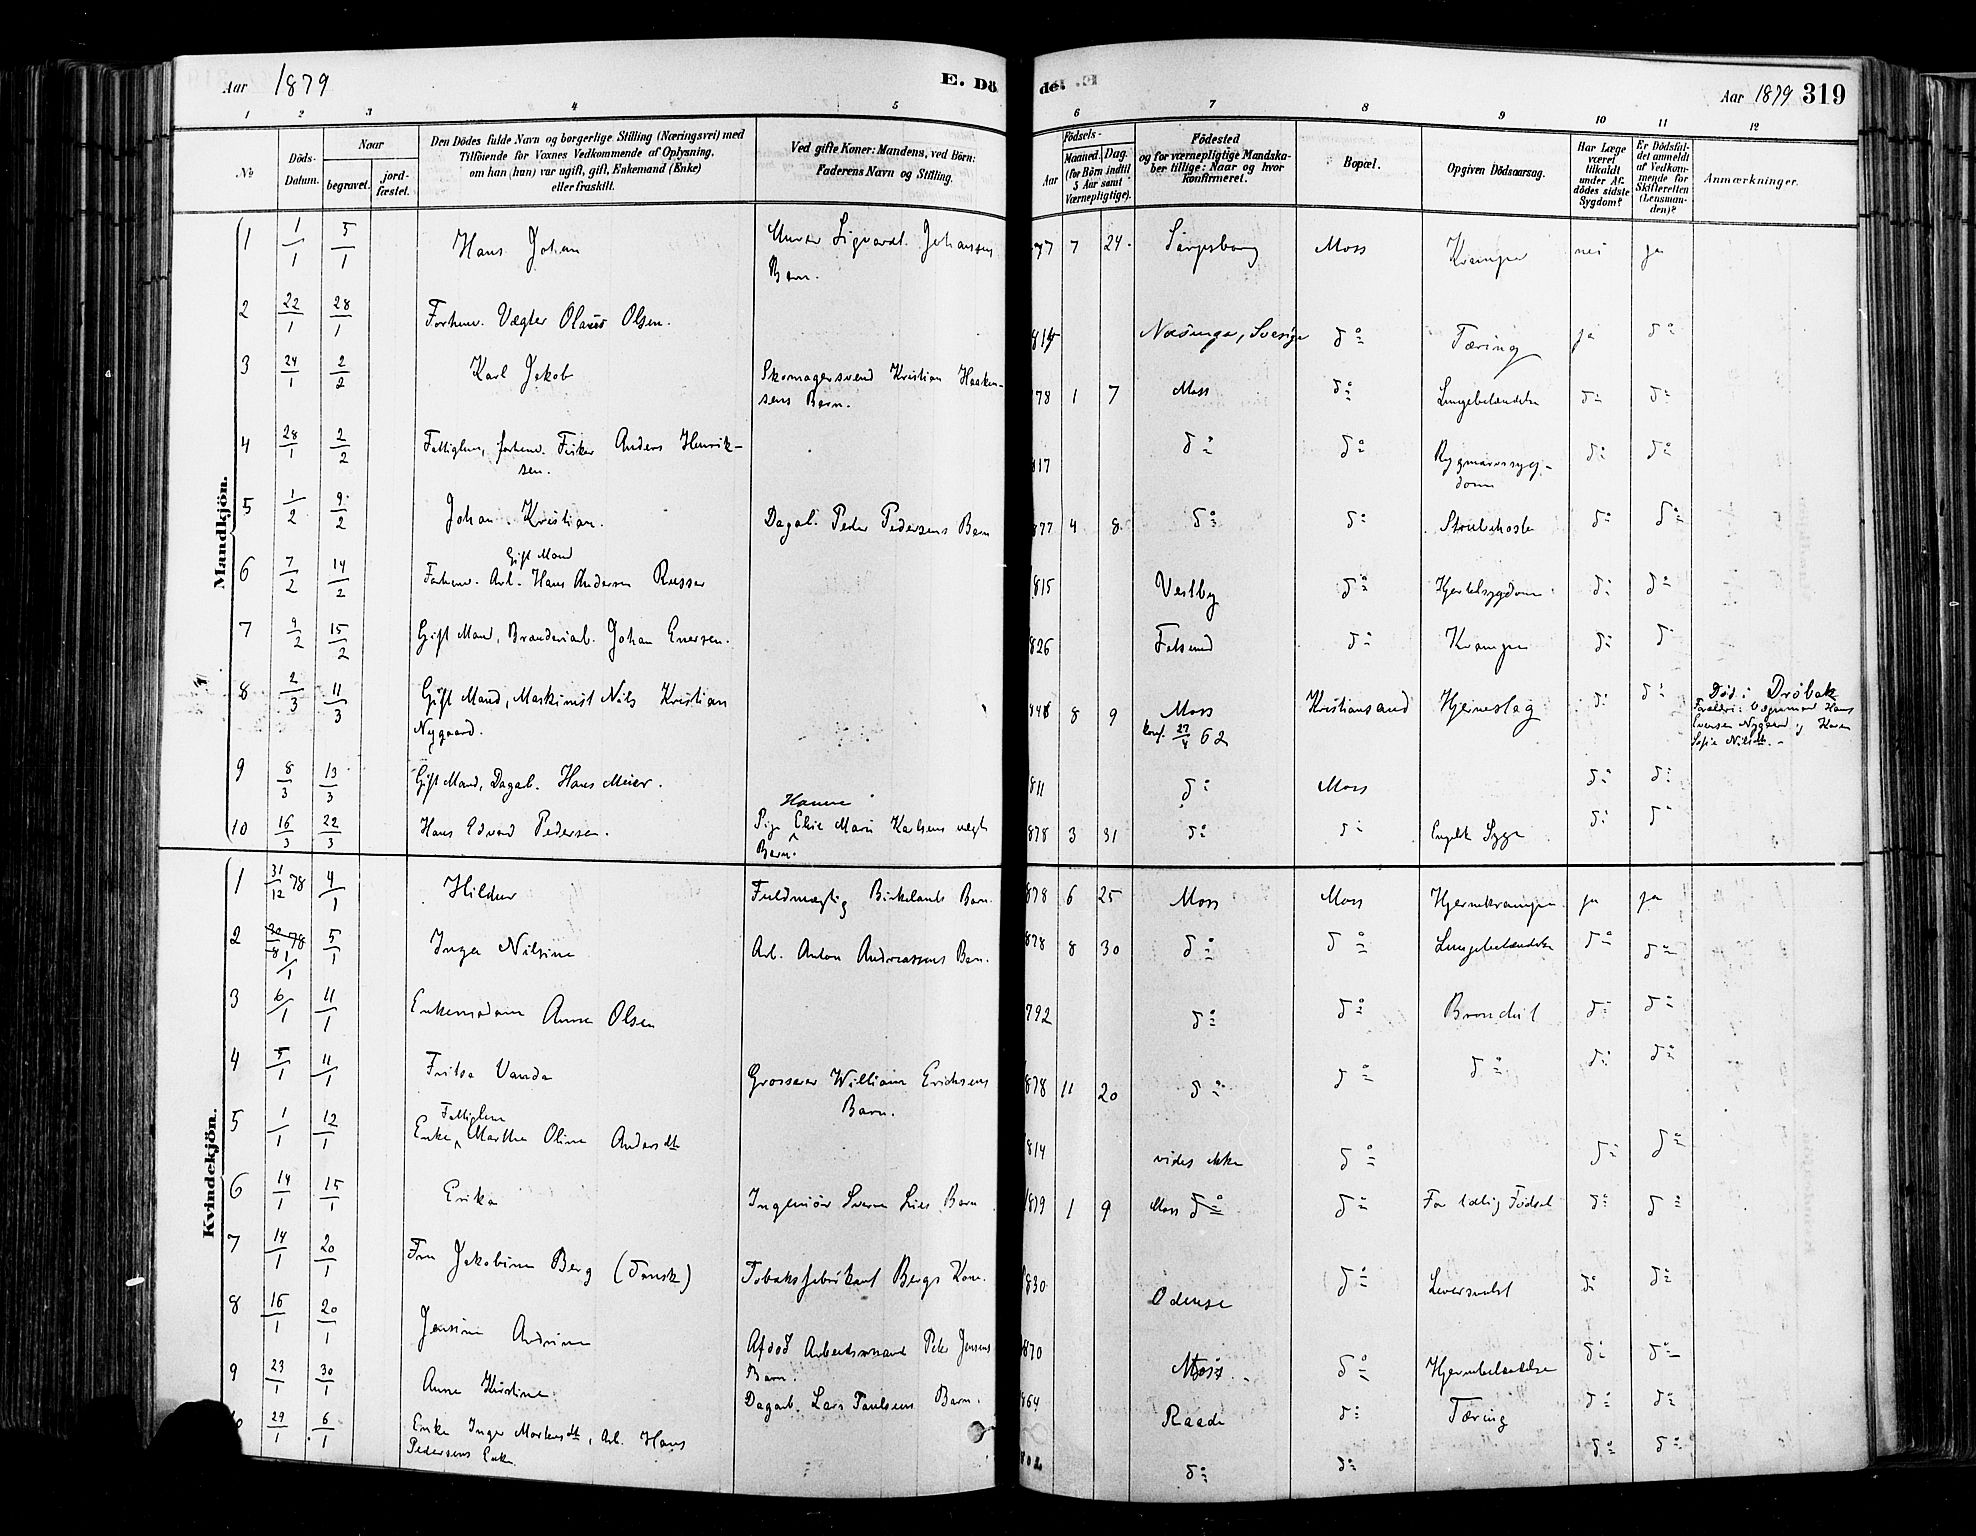 Aar 1879 E. Dö de. Aar 1879 319
1 2 3 4 5 6 7 8 9 10 11 12
No
Döds-Datum.
Naar
begravet.
jord-fæstet.
Den Dödes fulde Navn og borgerlige Stilling (Næringsvei) med
Tilföiende for Voxnes Vedkommende af Oplysning,
om han (hun) var ugift, gift, Enkemand (Enke)
eller fraskilt.
Ved gifte Koner: Mandens, ved Börn:
Faderens Navn og Stilling.
Födsels-
Aar
Maaned. Dag.
(for Börn indtil
5 Aar samt
Værnepligtige).
Födested
og for værnepligtige Mandska-
ber tillige: Naar og hvor
konfirmeret.
Bopæl.
Opgiven Dödsaarsag.
Har Læge
været
tilkaldt
under Af-
dödes sidste
Sygdom?
Er Dödsfal-
det anmeldt
af Vedkom-
mende for
Skifteretten
(Lensman-
den)?
Anmærkninger.
Mandkjön.
1 1/1 5/1 Hans Johan Murer Sigvardt Johansens Barn. 77 7 24. Sarpsborg Moss Kramper nei ja
2 22/1 28/1 Forhenv. Vægter Olaus Olsen. 814 Næsinge, Sverige do Tæring ja do
3 24/1 2/2 Karl Jakob Skomagersvend Kristian Haaken-
sens Barn. 78 1 7 Moss do Lungebetændelse do do
4 28/1 2/2 Fattiglem, forhenv. Fisker Anders Henrik-
sen. 817 do do Rygmarvssyg-
dom do do
5 1/2 9/2 Johan Kristian. Dagarb. Peder Pedersens Barn 877 4 8 do do Strubehoste do do
6 7/2 14/2 Gift Mand
Forhenv. Arb. Hans Andersen Rosser 815 Vestby do Hjertesygdom do do
7 9/2 15/2 Gift Mand, Brænderiarb. Johan Enersen. 826 Fetsund do Kramper do do
8 2/3 11/3 Gift Mand, Maskinist Nils Kristian
Nygaard. 8 9 Moss
konf. 27/4 62 Kristiansand Hjerneslag do do Död i Dröbak
Forældre: Vognmand Hans
Evensen Nygaard og Karen
Sofie Nilsdtr. –
9 8/3 13/3 Gift Mand, Dagarb. Hans Meier. 811 do Moss do do
10 16/3 22/3 Hans Edvard Pedersen. Hanne
Pige Elise Marie Karlsens uægte
Barn. 878 3 31 do do Engelsk Syge do do
Kvindekjön.
1 31/12 78 4/1 Hildur Fuldmægtig Birkelands Barn. 878 6 25 Moss Moss Hjernekramper ja ja
2 30/8 78 1/1 5/1 Inga Nilsine Arb. Anton Andreassens Barn. 878 8 30 do do Lungebetændelse do do
3 6/1 11/1 Enkemadame Anne Olsen 792 do do Bronchit do do
4 5/1 11/1 Fritse Vanda Grosserer William Erichsens
Barn. 878 11 20 do do do do do
5 1/1 12/1 Fattiglem
Enke Marthe Oline Andersdtr 814 vides ikke do do do
6 14/1 15/1 Erika Ingeniör Sverre Lies Barn 1879 1 9 Moss do do For tidlig Födsel do do
7 14/1 20/1 Fru Jakobine Berg (Dansk) Tobaksfabrikant Bergs Kone. 1830 Odense do Leversvulst do do
8 16/1 20/1 Jensine Andrine Afdöd Arbeidsmand Peter Jensens
Barn. 870 Moss do Hjernebetændelse do do
9 23/1 30/1 Anne Kirstine Dagarb. Lars Paulsens Barn. 864 Raade do Tæring do do
29/1 6/1 Enke Inger Mortensdtr, Arb. Hans
Pedersens Enke. 802 do do do do